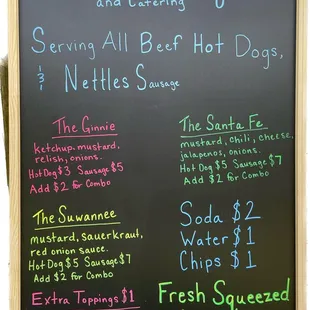 and Catering
Serving All Beef Hot Dogs,
& Nettles Sausage
The Ginnie
Ketchup, mustard,
relish, onions.
Hot Dog $3 Sausage $5
Add $2 for Combo
The Santa Fe
mustard, chili, cheese,
jalapenos, onions.
Hot Dog $5 Sausage $7
Add $2 for Combo
The Suwannee
mustard, sauerkraut,
red onion sauce.
Hot Dog $5 Sausage $7
Add $2 for Combo
Soda $2
Water $1
Chips $1
Extra Toppings $1
Fresh Squeezed